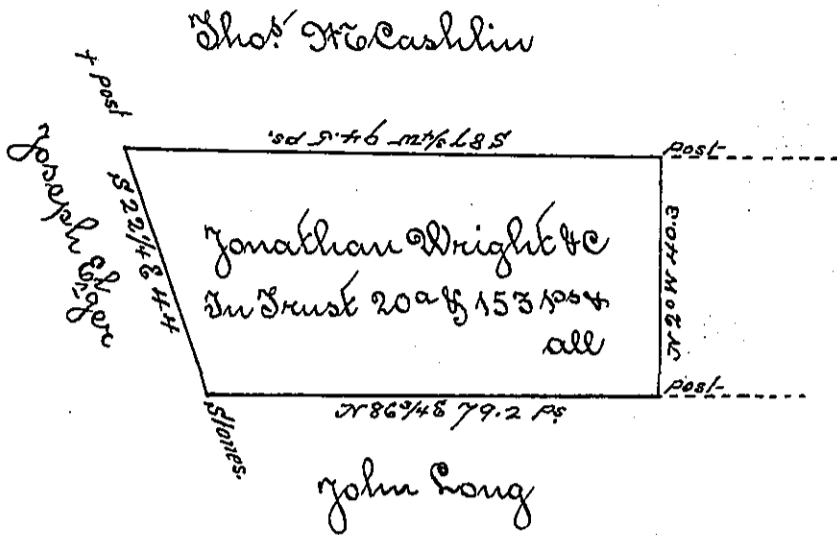 Thos. McCashlin
+ post
S 87 3/4 W 94.5 ps.
post
Joseph Eliger
S 22 1/4 E 44
Jonathan Wright &C
In Trust 20a & 153 ps &
all
N 2° W 40.3
post
Stones.
N 86 3/4 E 79.2 ps.
John Long